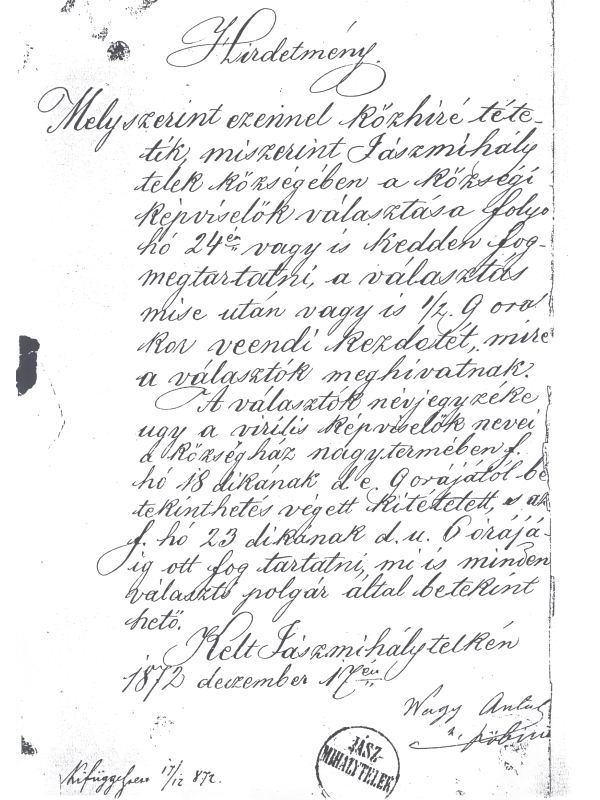 Hirdetmény.
Melyszerint ezennel közhiré téte-
tik, miszerint Jászmihály
telek községében a községi
képviselők választása folyo
hó 24én vagy is kedden fog-
megtartatni, a választás
mise után vagy is 1/2. 9 ora
kor veendi kezdetét, mire
a választók meghivatnak.
A választók névjegyzéke
ugy a virilis képviselők nevei
a községház nagytermében f.
hó 18 dikának d. e. 9 orájától be
tekinthetés végett kitétetett, s az
f. hó 23 dikának d. u. 6 órájá-
ig ott fog tartatni, mi is minden
választó polgár által betekint
hető.
Kélt Jászmihálytelkén
1872 deczember 17én
Nagy Antal
Kifüggesztve 17/12 872.
JÁSZ-
MIHÁLYTELEK